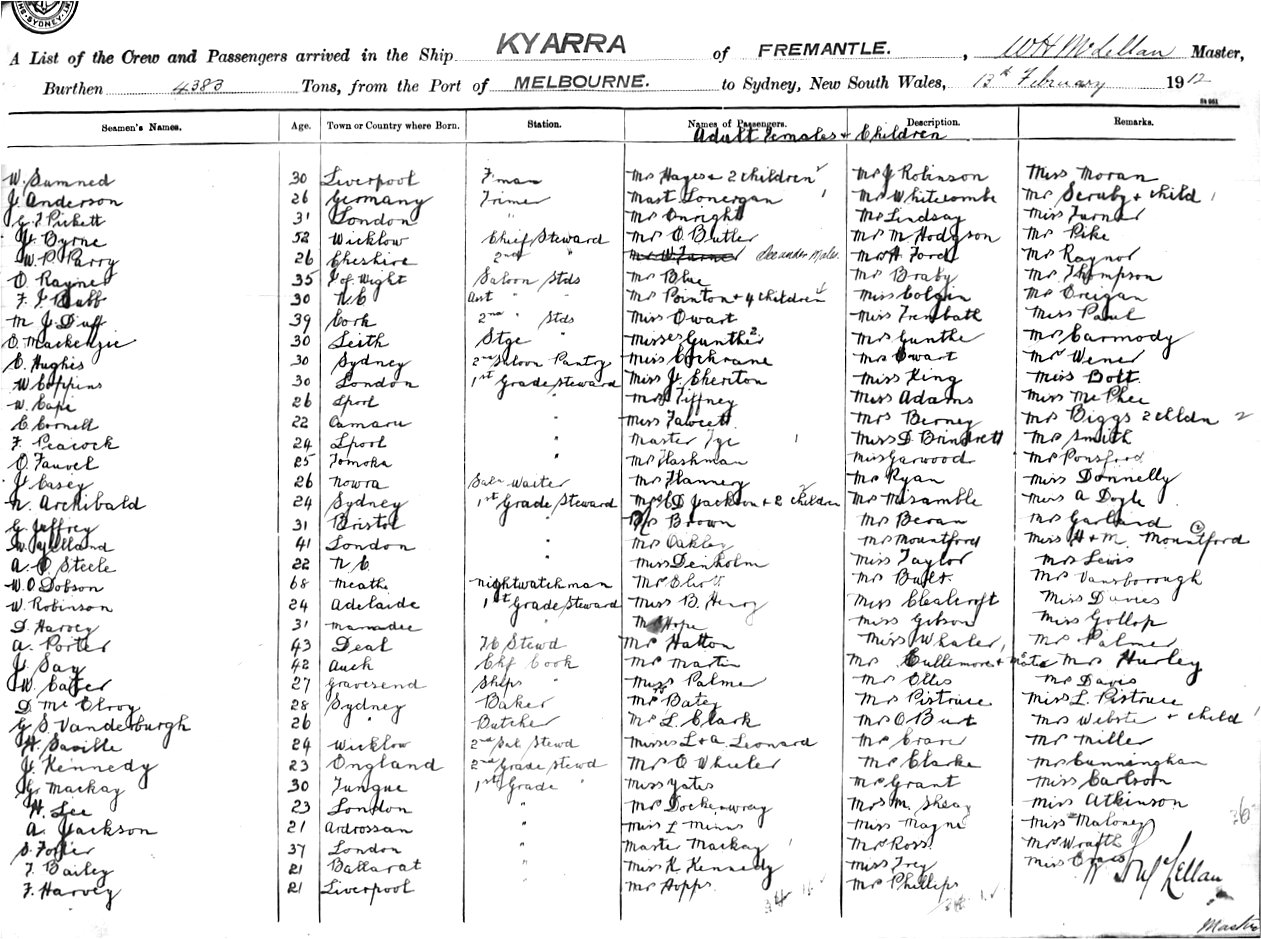 THE SYDNEY
A List of the Crew and Passengers arrived in the Ship KYARRA of FREMANTLE. , W H McLellan Master,
Burthen 4383 Tons, from the Port of MELBOURNE. to Sydney, New South Wales, 13th February 1912
Seamen's Names. Age. Town or Country where Born. Station. Names of Passengers. Description. Remarks.
Adult Females & Children
W. Sumned 30 Liverpool F.man Mrs Hayes & 2 children Mrs J Robinson Miss Moran
J. Anderson 26 Germany Trimer Mast Lonergan 1 Mrs Whitecombe Mrs Scruby & child 1
G. F Pickett 31 London " Mrs Onright Mrs Lindsay Miss Turner
J. Byrne 52 Wicklow Chief Steward Mrs O Butler Mrs M Hodgson Mrs Pike
W. P. Parry 26 Cheshire 2nd " Mrs W Turner See under Males. Mrs H Ford Mrs Raynor
O. Rayner 35 I of Wight Saloon Stds Mrs Blue Mrs Braby Mrs Thompson
F. J Babb 30 N.C Ast " " Mrs Pointon & 4 children Miss Colgin Mrs Creigan
M J Duff 39 Cork 2nd " Stds Miss Ewart Miss Trembath Miss Paul
C. Mackenzie 30 Leith Stge " Misses Gunther 2 Mrs Gunthe Mrs Carmody
E. Hughes 30 Sydney 2nd Saloon Pantry Miss Cochrane Mrs Ewart Mrs Wener
W Coppins 30 London 1st Grade Steward Miss J. Cheriton Miss King Miss Bolt.
W. Cape 26 Lpool " Mrs Tiffney Miss Adams Miss McPhee
C Cornell 22 Camaru " Miss Fawcett Mrs Berney Mrs Biggs 2 childn 2
F. Peacock 24 Lpool " Master Tye 1 Miss D. Brindrett Mrs Smith
O. Fauvel 25 Tomoka " Mrs Hashman Miss Garwood Mrs Ponsford
J. Casey 26 Nowra Saln Waiter Mrs Flannery Mrs Ryan Miss Donnelly
N. Archibald 24 Sydney 1st Grade Steward Mrs C D Jackson & 2 children Mrs McSramble Miss A Doyle
G Jeffrey 31 Bristol " Mrs Brown Mrs Beran Mrs Garland
W. Yelland 41 London " Mrs Oakley Mrs Mountford Miss H & M. Mountford 2
A. C. Steele 22 N.C " Miss Denholm Miss Taylor Mrs Lewis
W. O Dobson 68 Meath Nightwatchman Mrs Eliott Mrs Built Mrs Vansborough
W. Robinson 24 Adelaide 1st Grade Steward Miss B. Henry Miss Clealcroft Miss Davies
D. Harvey 31 " Mrs Hope Miss Gibson Miss Gollop
A. Porter 43 Deal Stewd Mrs Hatton Miss Whaler, Mrs Palmer
J. Say 42 Auck Chf Cook Mrs Martin Mrs Cullimore & Mrs Hurley
W. Cater 27 Gravesend Ships " Miss Palmer Mrs Ellis Mrs Davis
D. McElroy 28 Sydney Baker Mrs Batey Mrs Pistouce Miss L. Pistouce
G S. Vanderburgh 26 " Butcher Mrs L. Clark Mrs O Burt Mrs Webster & child 1
H. Saville 24 Wicklow 2nd Sal Stewd Misses L & A. Leonard Mrs Crave Mrs Miller
J. Kennedy 23 England 2nd Grade Stewd Mrs O Wheeler Mrs Clarke Mrs Cunningham
G. Mackay 30 Tungue 1st Grade " Miss Yates Mrs Grant Miss Carlson
H. Lee 23 London " Mrs Dockenwray Mrs M. Sheay Miss Atkinson
A. Jackson 21 Ardrossan " Miss L Minns Miss Magne Miss Maloney
S. Foster 37 London " Master Mackay 1 Mrs Ross. Mrs Wraith
F. Bailey 21 Ballarat " Miss K Kennedy Miss Frey Miss
F. Harvey 21 Liverpool " Mrs Hopps Mrs Phillips W H McLellan
Master